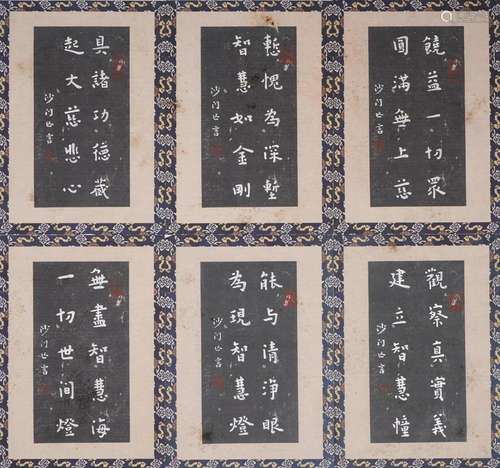 饒益一切眾
圓滿無上慈
沙门亡言
慙愧為深塹
智慧如金剛
沙门亡言
具諸功德藏
起大慈悲心
沙门亡言
觀察真實義
建立智慧幢
沙门亡言
能与清淨眼
為現智慧燈
沙门亡言
無盡智慧海
一切世間燈
沙门亡言